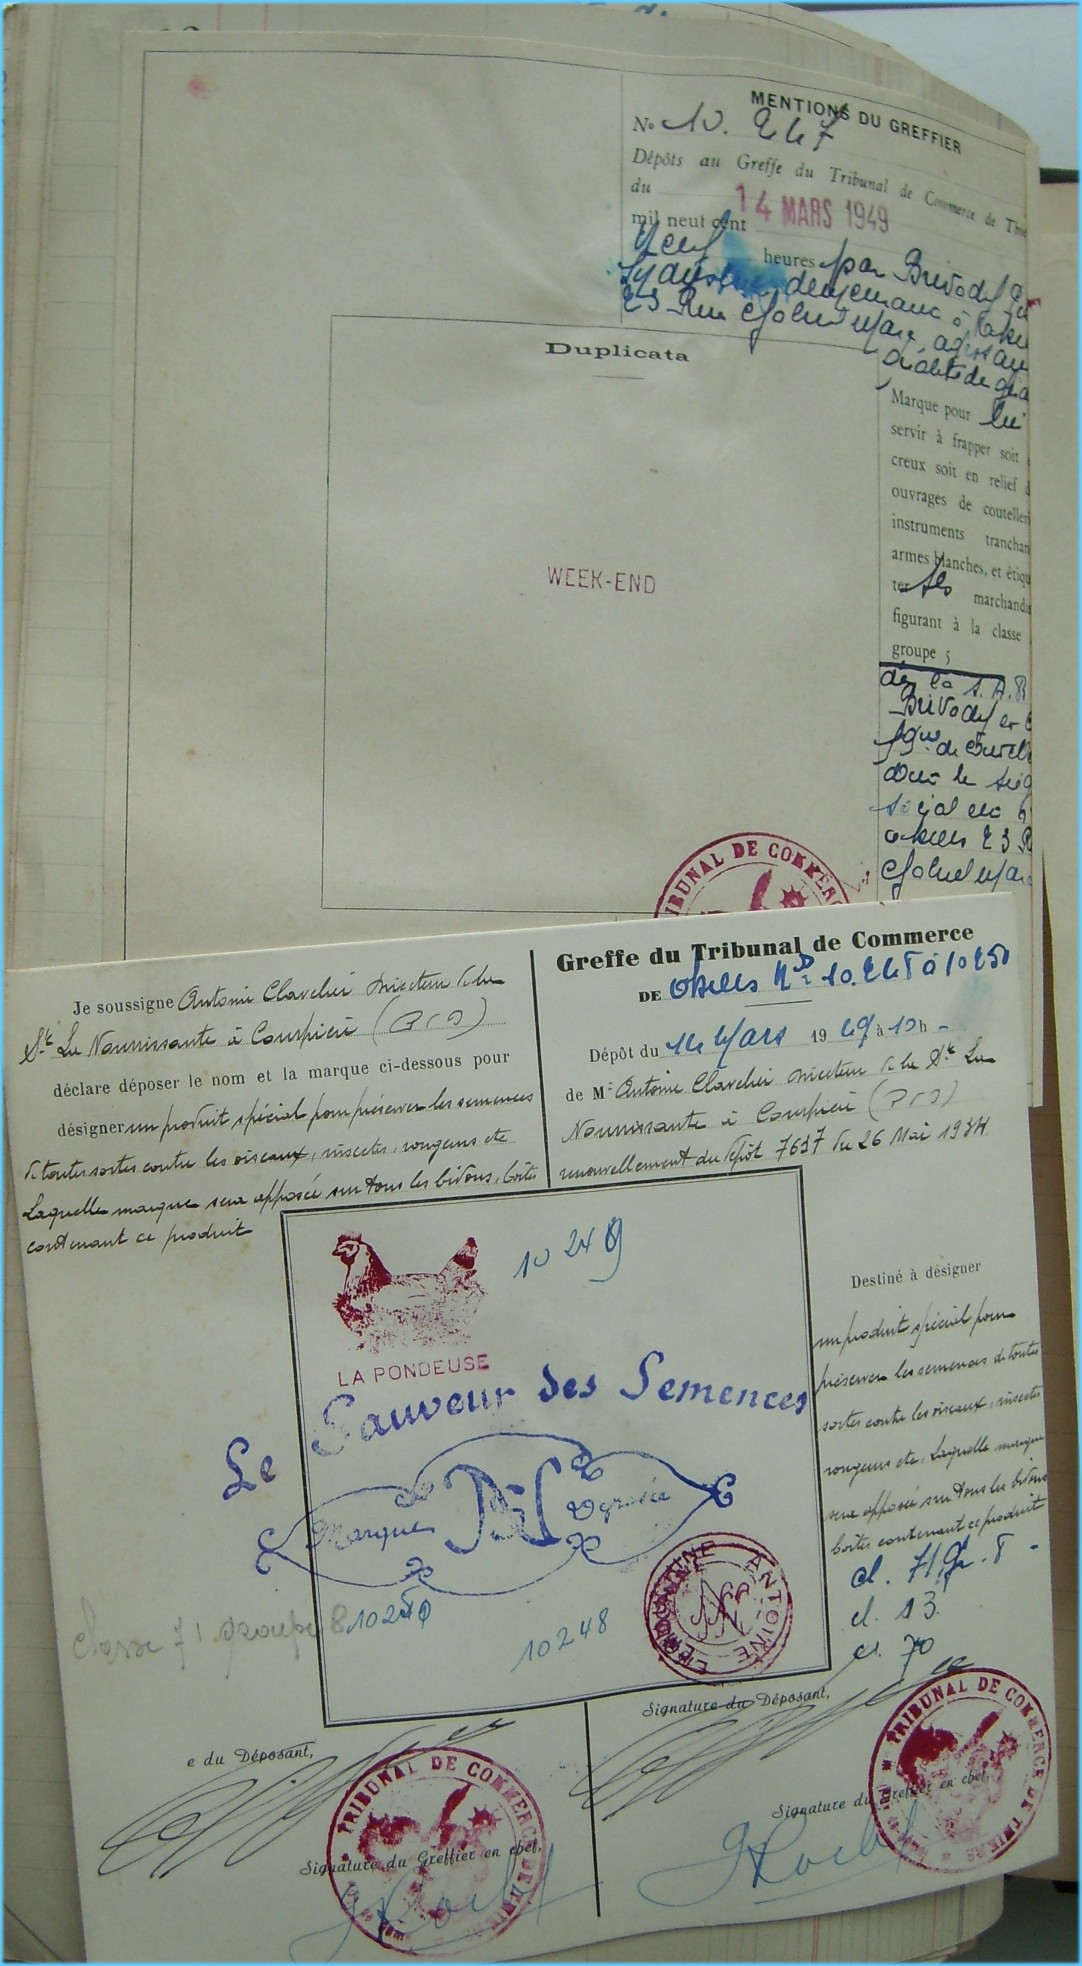 MENTIONS DU GREFFIER
No 10.247
Dépôts au Greffe du Tribunal de Commerce de
du 14 MARS 1949
mil neuf cent
heures par
23 Rue
Duplicata
Marque pour lui
servir à frapper soit
creux soit en relief
ouvrages de
instruments
armes blanches, et
ses
figurant à la classe
groupe 5
de la S.A.R
de
dont le
social
23
WEEK-END
TRIBUNAL DE COMMERCE
Je soussigné Antoine Clavelier Directeur de la
Sté La Nourrissante à Courpière (P.D.D)
déclare déposer le nom et la marque ci-dessous pour
désigner un produit spécial pour préserver les semences
de toutes sortes contre les oiseaux, insectes, rongeurs etc
Laquelle marque sera apposée sur tous les bidons, boîtes
contenant ce produit
Greffe du Tribunal de Commerce
DE Thiers Nos 10.248 à 10250
Dépôt du 14 Mars 1949 à 10h -
de Mr Antoine Clavelier Directeur de la Sté La
Nourrissante à Courpière (P.D.D)
renouvellement du dépôt 7637 du 26 Mai 1934
10249
LA PONDEUSE
Le Sauveur des Semences
Marque Déposée
10250
10248
Classe 71 groupe 8
ANTOINE
Destiné à désigner
un produit spécial pour
préserver les semences de toutes
sortes contre les oiseaux, insectes
rongeurs etc. Laquelle marque
sera apposée sur tous les bidons
boîtes contenant ce produit
cl. 71 Gr. 8 -
cl. 13
cl. 70
e du Déposant,
Signature du Déposant,
TRIBUNAL DE COMMERCE DE THIERS
Signature du Greffier en chef,
TRIBUNAL DE COMMERCE DE THIERS
Signature du Greffier en chef,